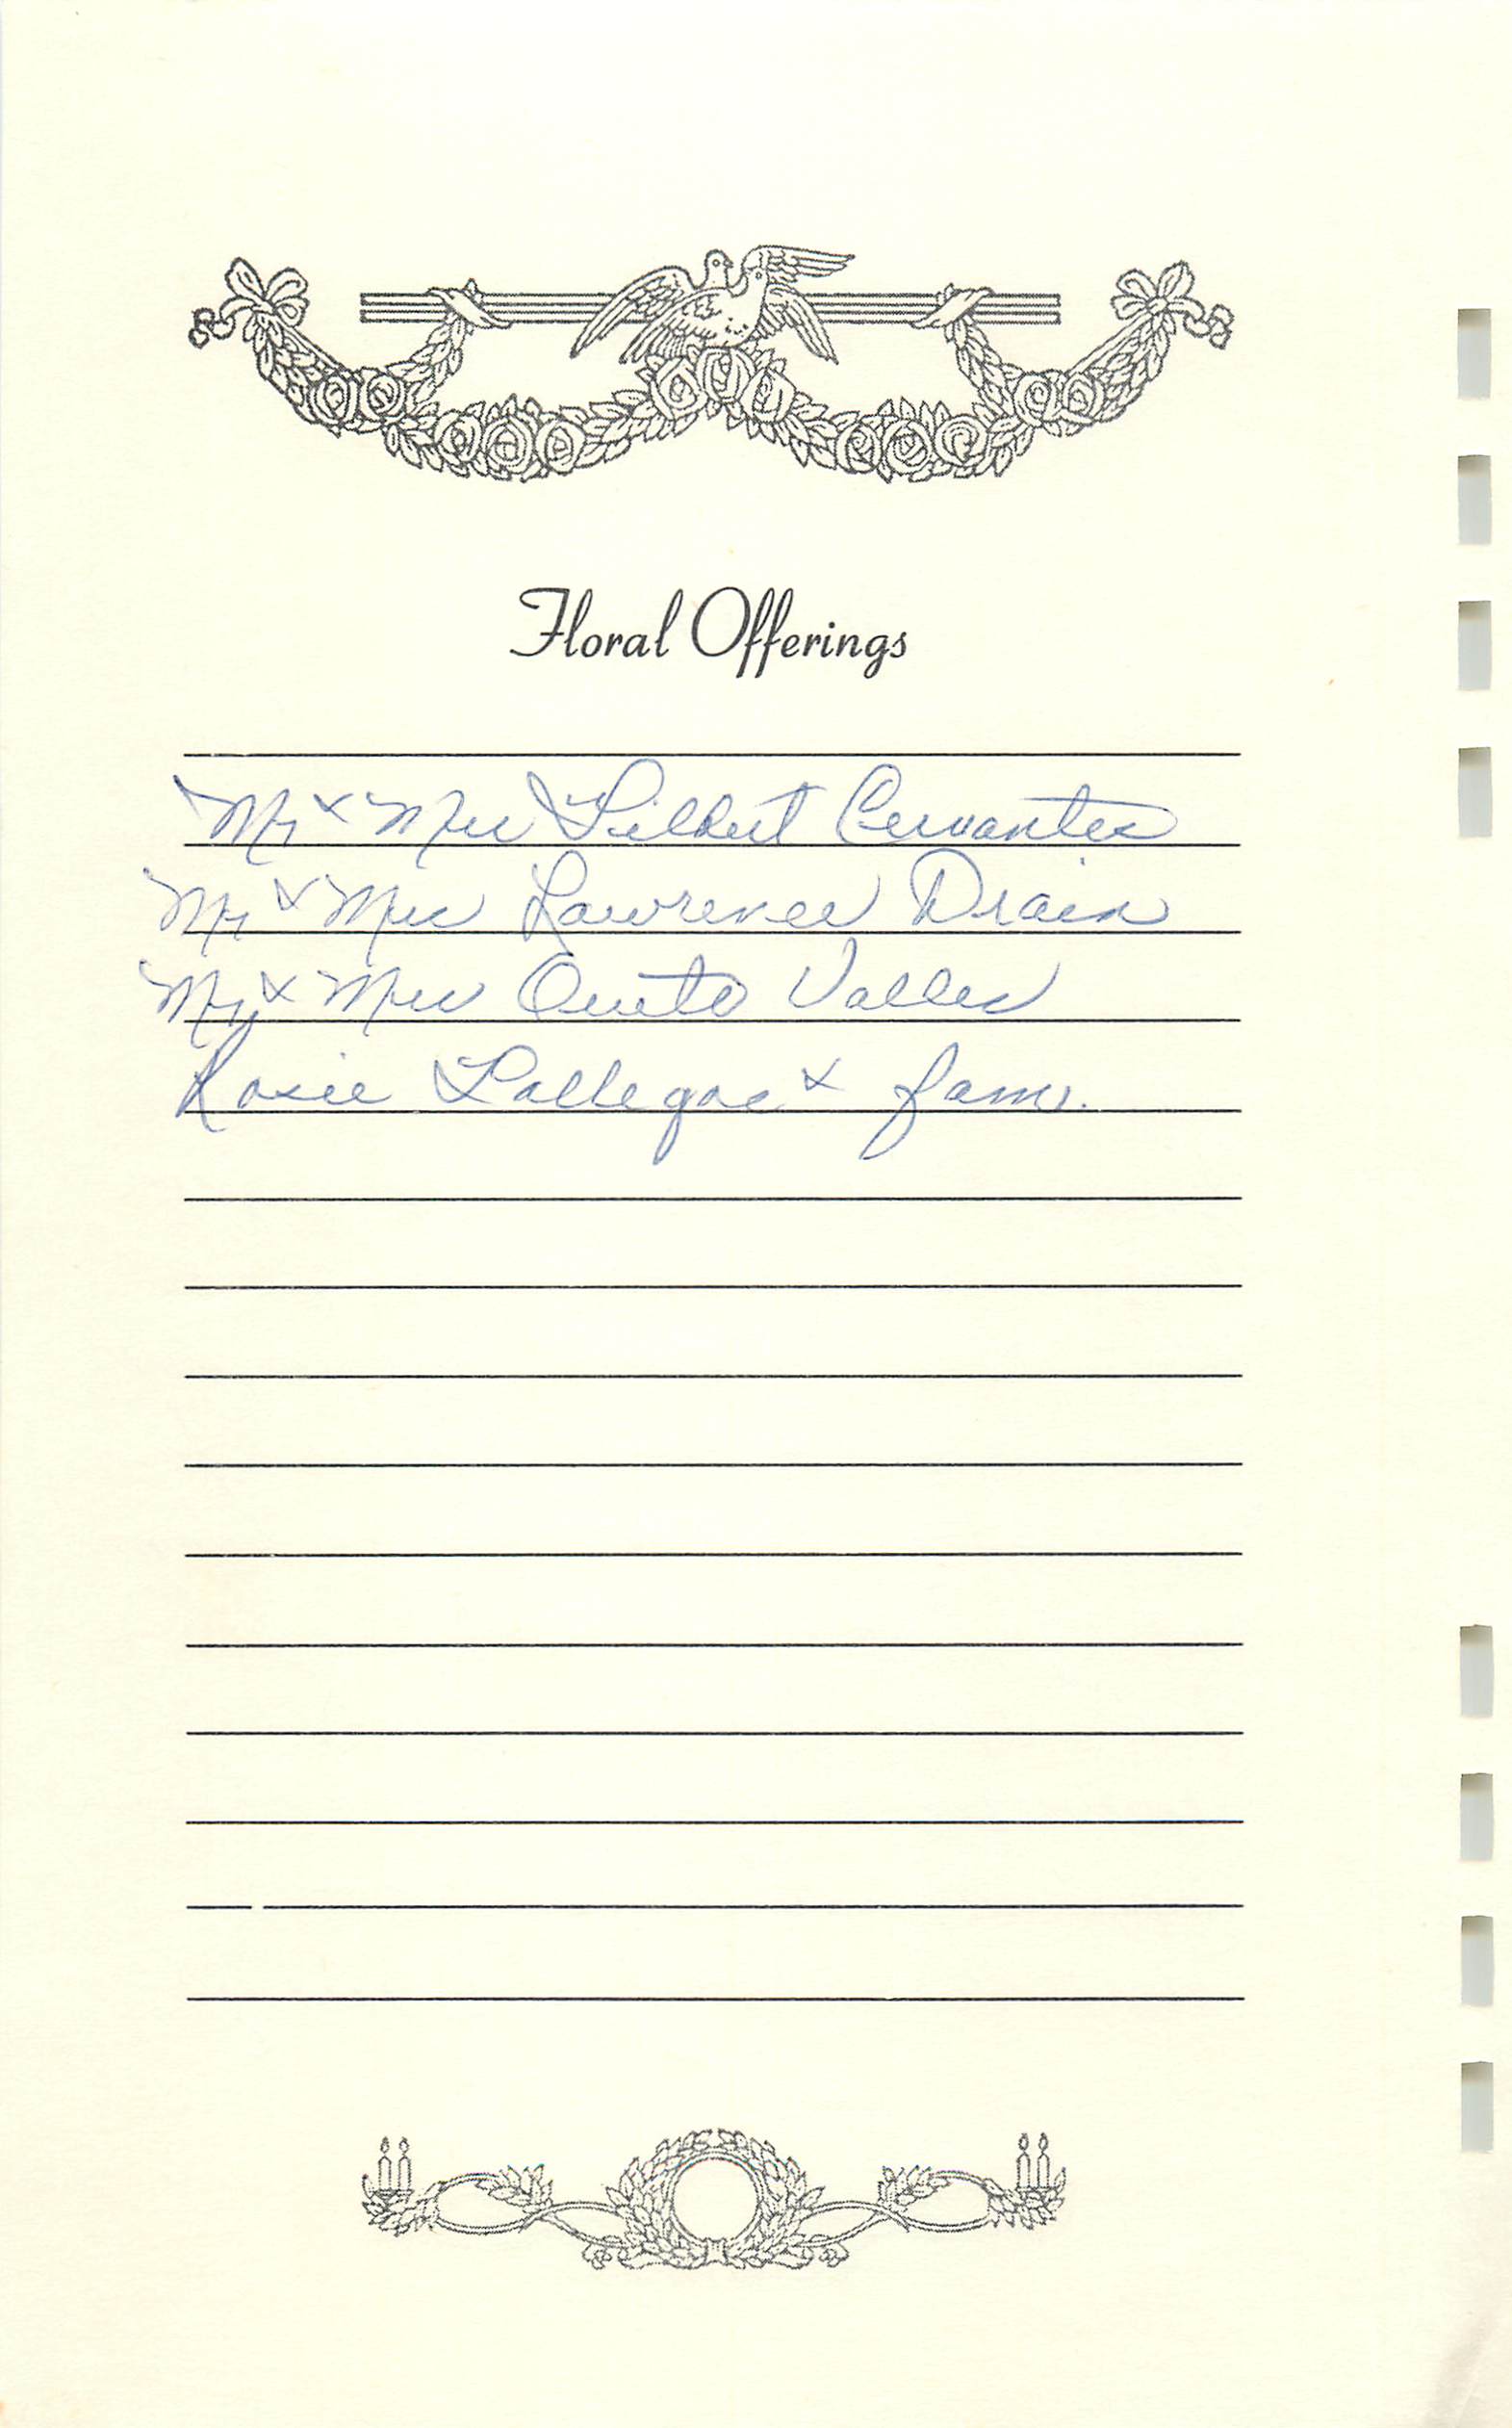 Floral Offerings
Mr & Mrs Gilbert Cervantes
Mr & Mrs Lawrence Drain
Mr & Mrs Valles
Rosie Gallegos & fam.